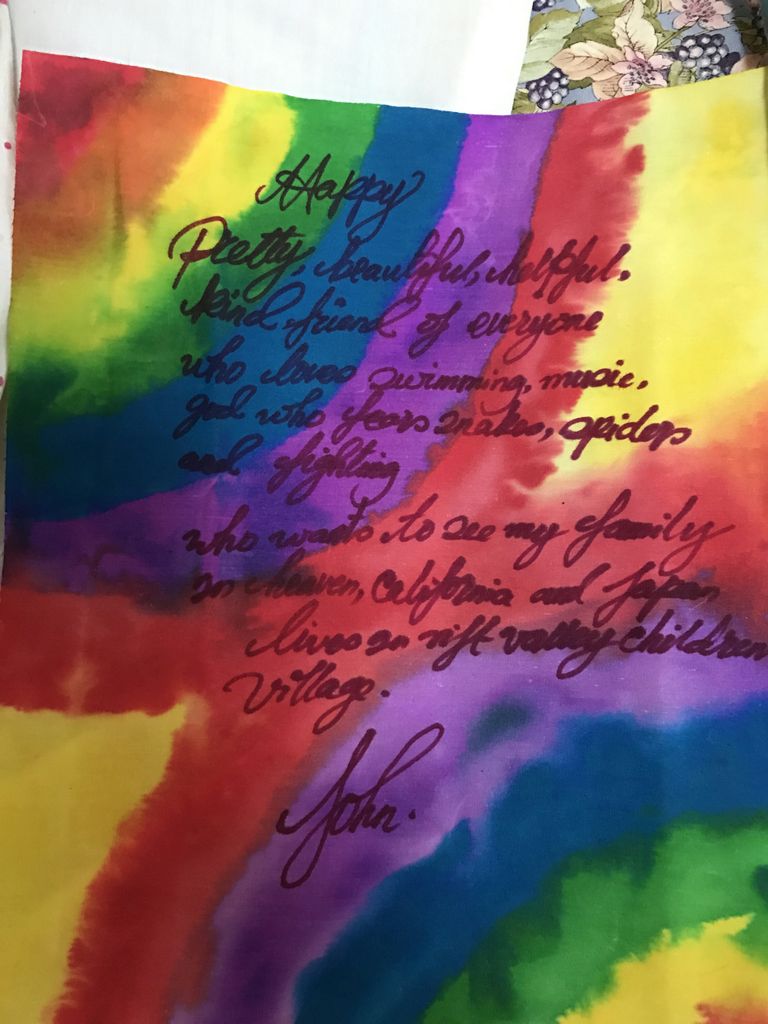 Happy
Pretty, beautiful, helpful,
kind friend of everyone
who loves swimming, music,
god who fears snakes, spiders
and fighting
who wants to see my family
in heaven, California and Japan
lives in rift valley children
Village.
John.